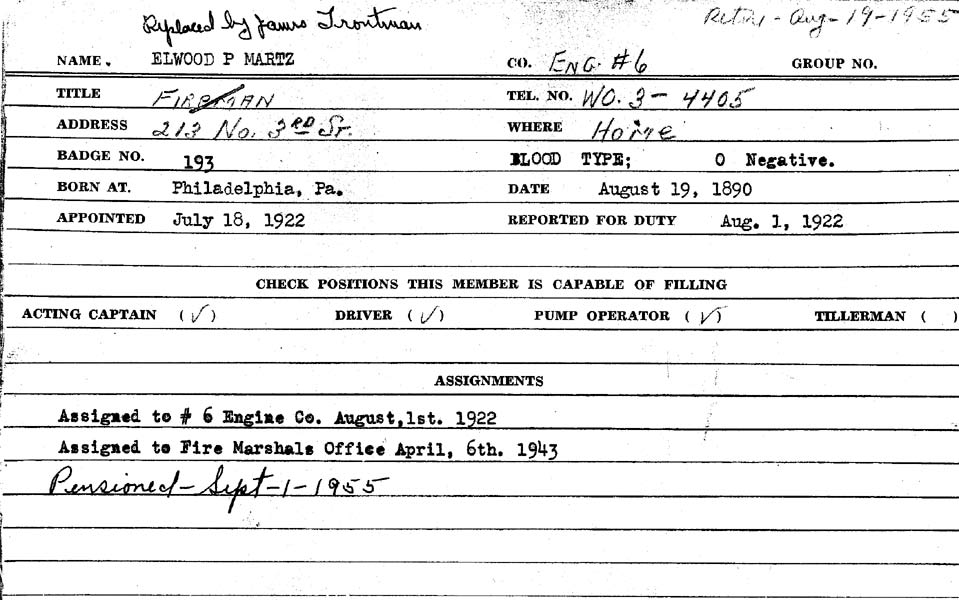 Replaced by James Trontman
Retir - Aug - 19 - 1955
NAME. ELWOOD P MARTZ CO. ENG. #6 GROUP NO.
TITLE FIREMAN TEL. NO. WO. 3 - 4405
ADDRESS 213 No. 3RD ST. WHERE Home
BADGE NO. 193 BLOOD TYPE; O Negative.
BORN AT. Philadelphia, Pa. DATE August 19, 1890
APPOINTED July 18, 1922 REPORTED FOR DUTY Aug. 1, 1922
CHECK POSITIONS THIS MEMBER IS CAPABLE OF FILLING
ACTING CAPTAIN (✓) DRIVER (✓) PUMP OPERATOR (✓) TILLERMAN ( )
ASSIGNMENTS
Assigned to # 6 Engine Co. August,1st. 1922
Assigned to Fire Marshals Office April, 6th. 1943
Pensioned - Sept - 1 - 1955